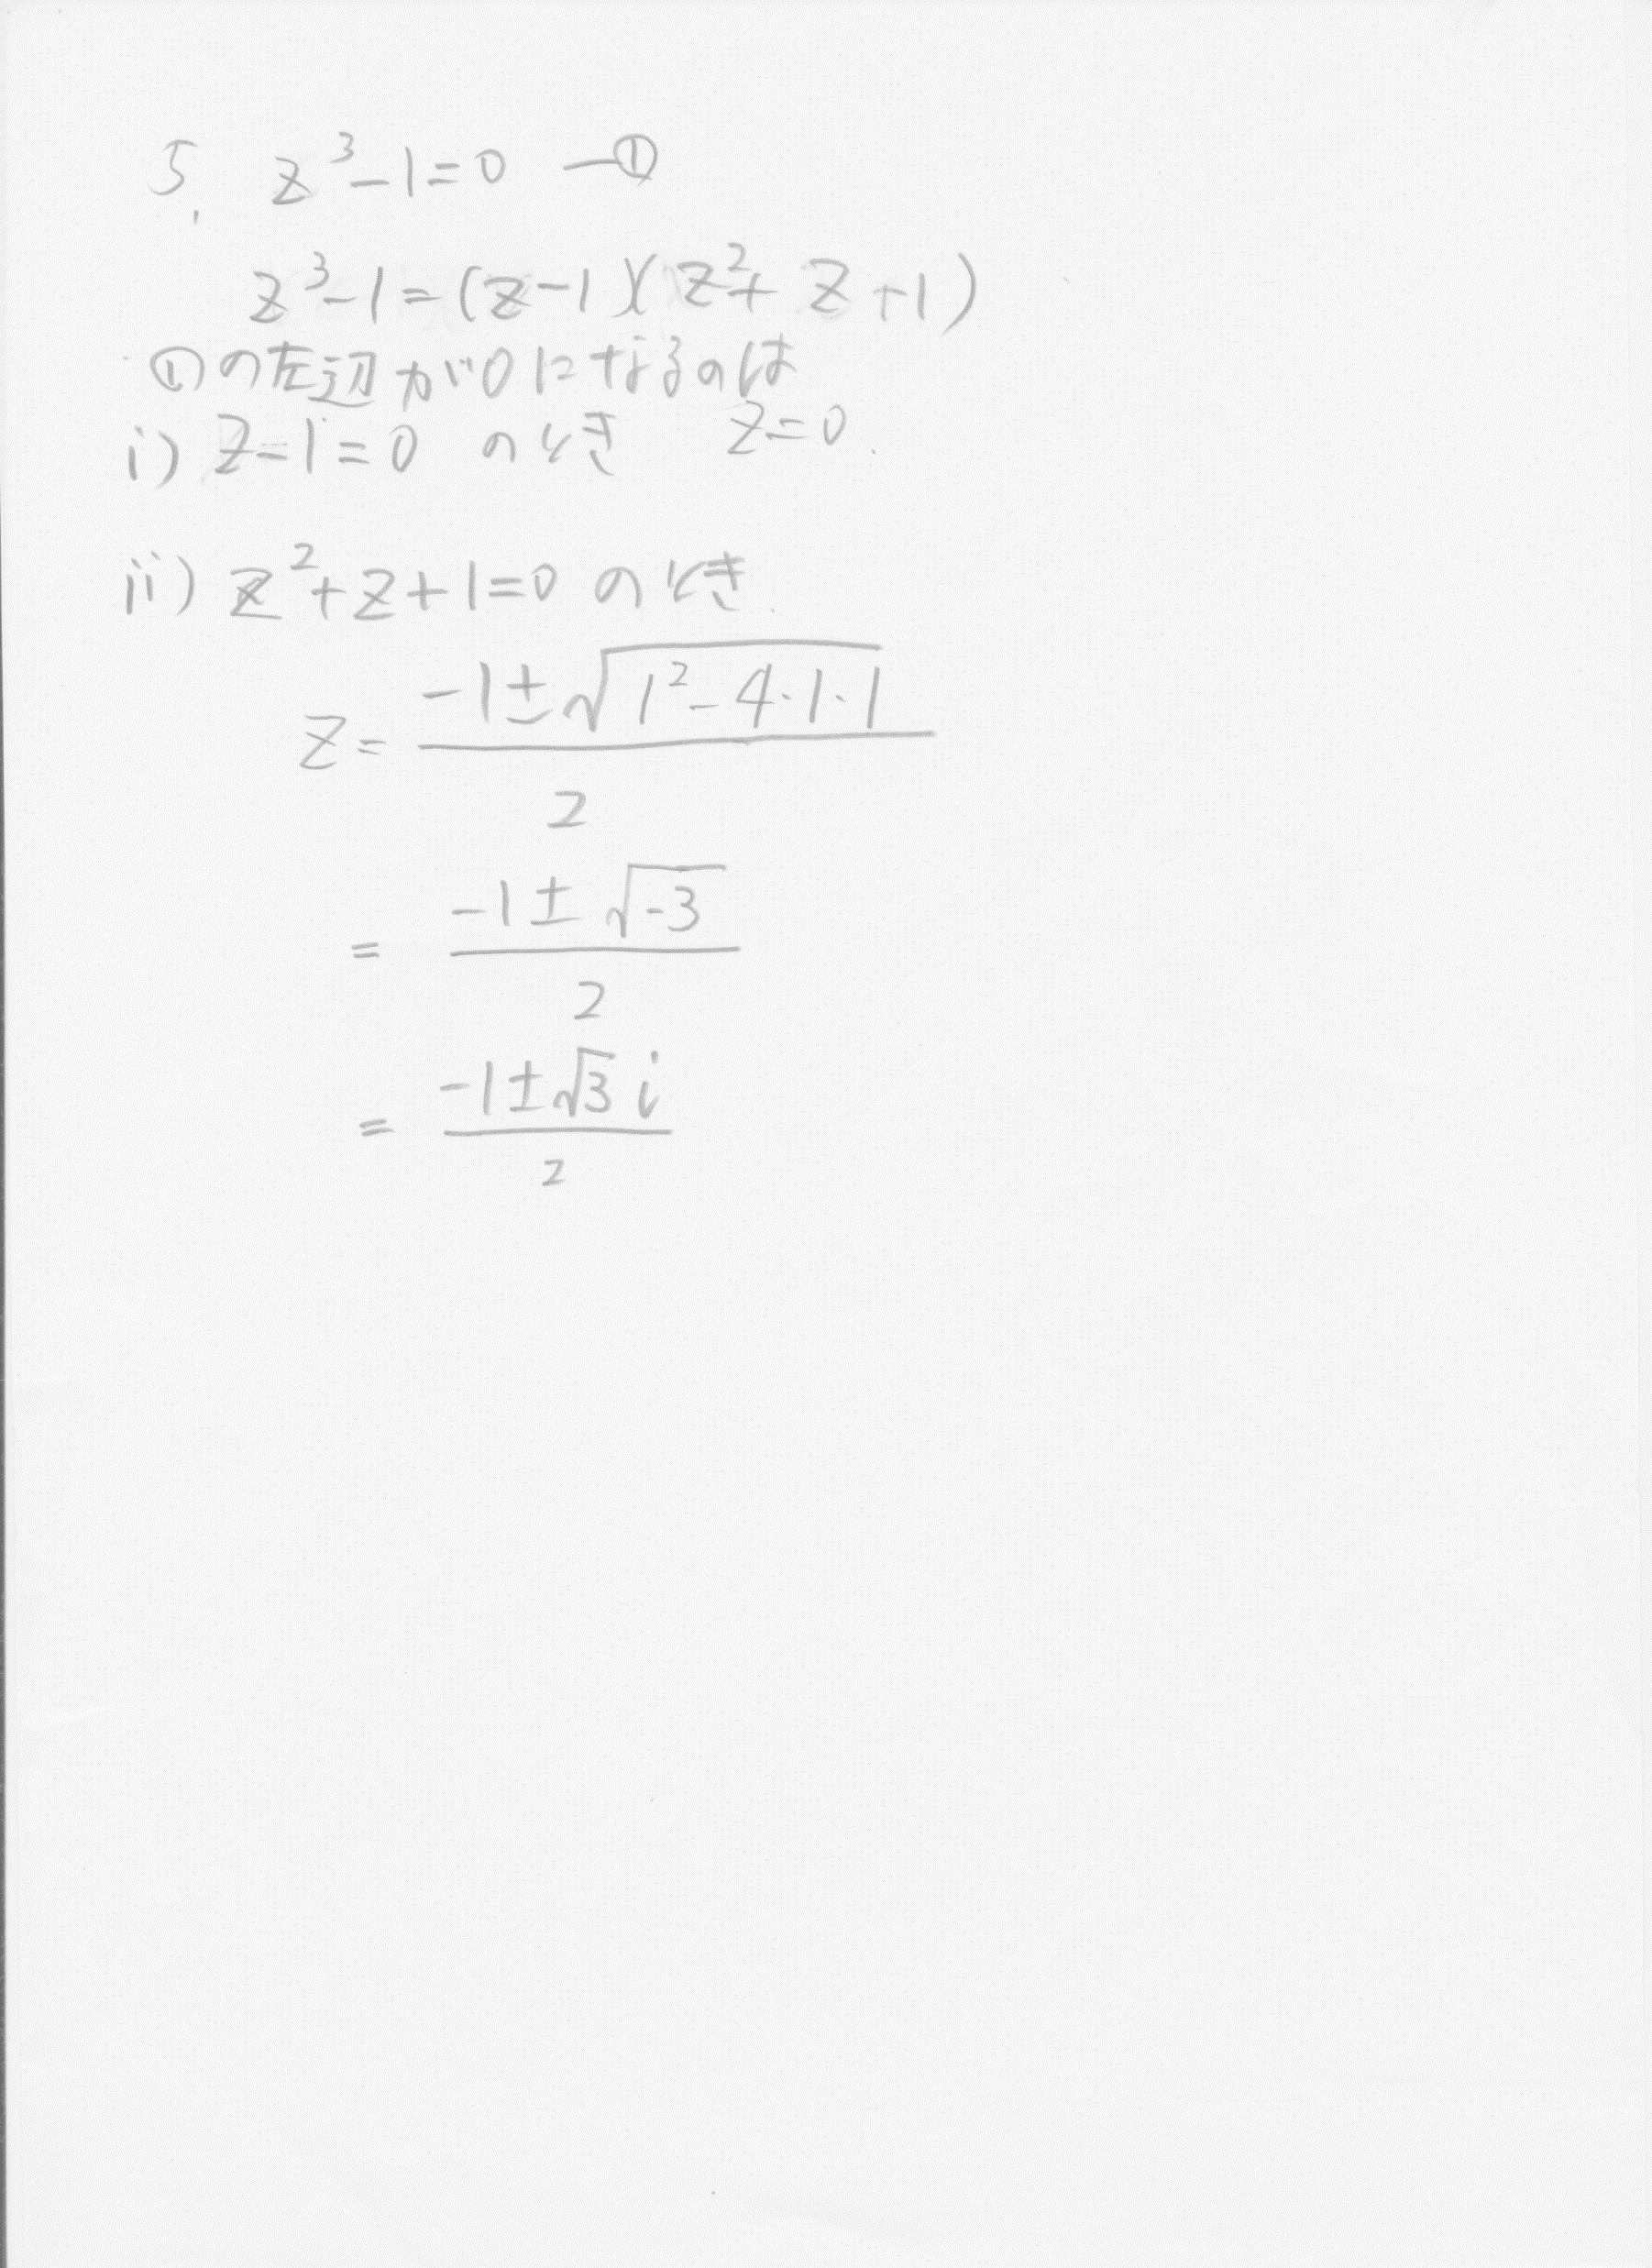 5. z³-1=0 —①
z³-1=(z-1)(z²+z+1)
①の左辺が0になるのは
i) z-1=0 のとき z=0.
ii) z²+z+1=0 のとき.
z= (-1±√(1²-4·1·1))/2
= (-1±√(-3))/2
= (-1±√3 i)/2